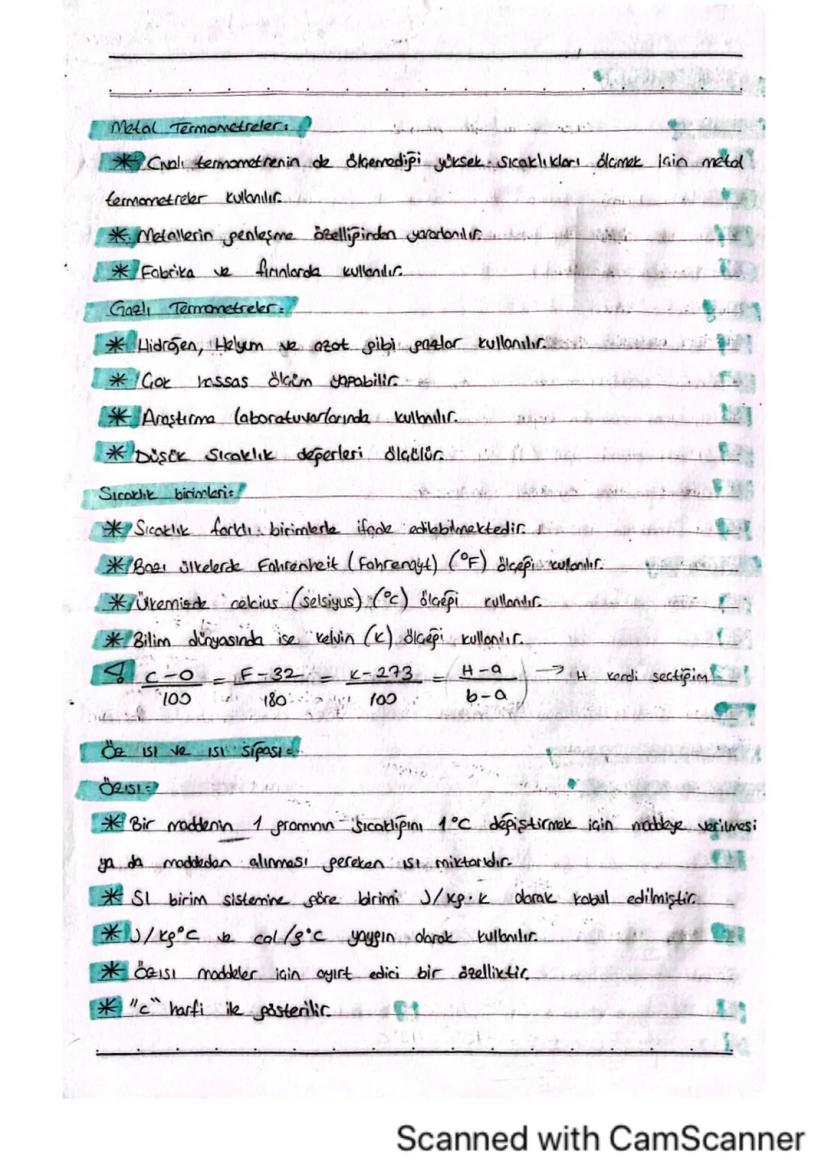 Metal Termometreler:
* Cıvalı termometrenin de ölçemediği yüksek sıcaklıkları ölçmek için metal
termometreler kullanılır.
* Metallerin genleşme özelliğinden yararlanılır.
* Fabrika ve fırınlarda kullanılır.
Gazlı Termometreler:
* Hidrojen, Helyum ve azot gibi gazlar kullanılır.
* Çok hassas ölçüm yapabilir.
* Araştırma laboratuvarlarında kullanılır.
* Düşük sıcaklık değerleri ölçülür.
Sıcaklık birimleri:
* Sıcaklık farklı birimlerle ifade edilebilmektedir.
* Bazı ülkelerde Fahrenheit (Fahrenayt) (°F) ölçeği kullanılır.
* Ülkemizde celcius (selsiyus) (°C) ölçeği kullanılır.
* Bilim dünyasında ise kelvin (K) ölçeği kullanılır.
! C-0/100 = F-32/180 = K-273/100 = (H-a/b-a) → H kendi seçtiğim
Öz ısı ve ısı sığası:
Özısı:
* Bir maddenin 1 gramının sıcaklığını 1°C değiştirmek için maddeye verilmesi
ya da maddeden alınması gereken ısı miktarıdır.
* SI birim sistemine göre birimi J/kg.K olarak kabul edilmiştir.
* J/kg°C ve cal/g°C yaygın olarak kullanılır.
* Özısı maddeler için ayırt edici bir özelliktir.
* "c" harfi ile gösterilir.
Scanned with CamScanner